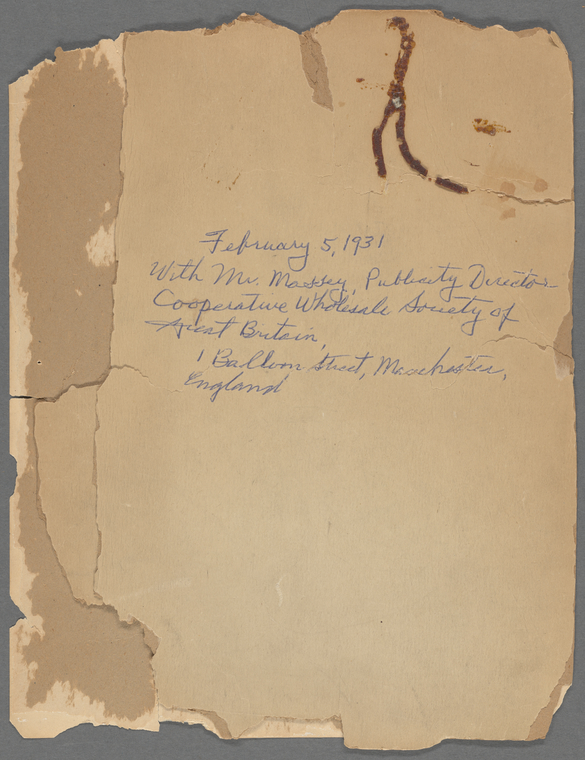 February 5, 1931
With Mr. Massey, Publicity Director
Cooperative Wholesale Society of
Great Britain,
1 Balloon Street, Manchester,
England